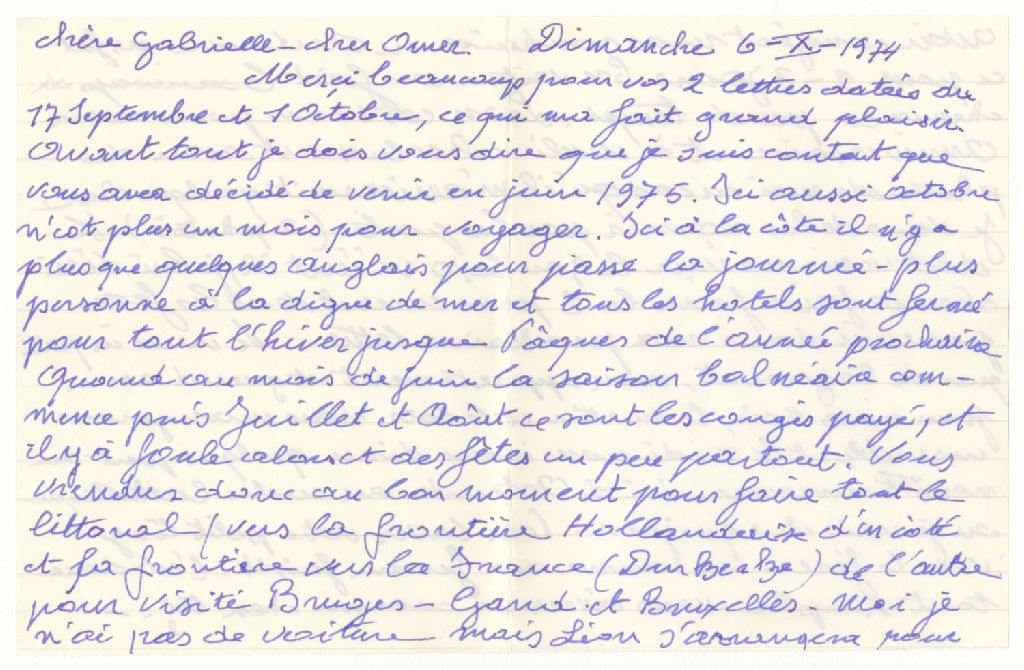 chère Gabrielle - cher Omer. Dimanche 6-X-1974
Merci beaucoup pour vos 2 lettres datées du
17 Septembre et 1 Octobre, ce qui ma fait grand plaisir.
Avant tout je dois vous dire que je suis content que
vous avez décidé de venir en juin 1975. Ici aussi octobre
n'est plus un mois pour voyager. Ici à la côte il n'y a
plus que quelques anglais pour passe la journée - plus
personne à la digue de mer et tous les hotels sont fermé
pour tout l'hiver jusque Pâques de l'année prochaine
Quand au mois de juin la saison balnéaire com-
mence puis Juillet et Août ce sont les congés payé, et
il y à foule alors et des fêtes un peu partout. Vous
viendrez donc au bon moment pour faire tout le
littoral (vers la frontière Hollandaise d'un côté
et la frontière vers la France (Dunkerke) de l'autre
pour visité Bruges - Gand et Bruxelles. Moi je
n'ai pas de voiture mais Léon s'arrangera pour